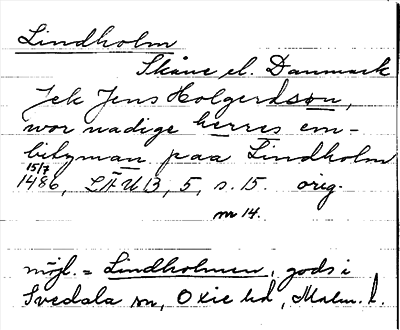 Lindholm
Skåne el. Danmark
Jek Jens Holgerdsøn,
wor nadige herres em-
bitzman paa Lindholm
15/7
1486, LÄU 13, 5, s. 15. orig.
m 14.
möjl. = Lindholmen, gods i
Svedala sn, Oxie hd, Malm. l.